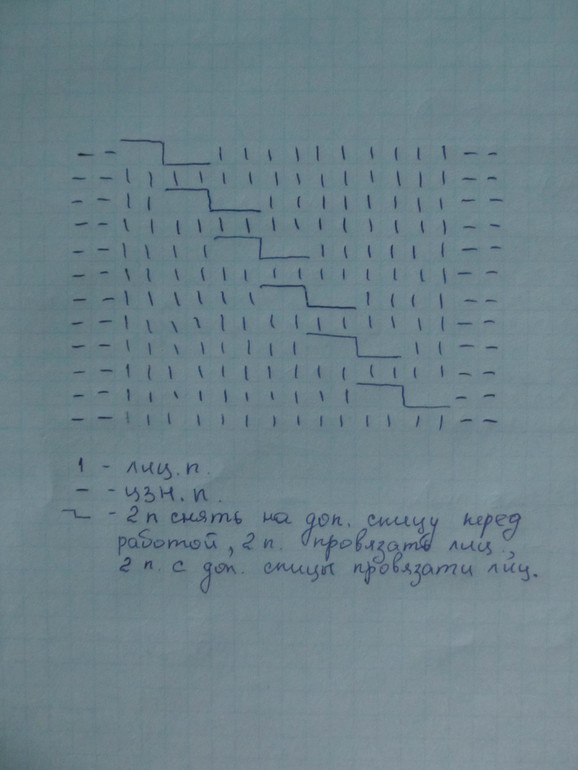 1 - лиц. п.
— - изн. п.
- 2 п снять на доп. спицу перед
работой, 2 п. провязать лиц.,
2 п. с доп. спицы провязати лиц.